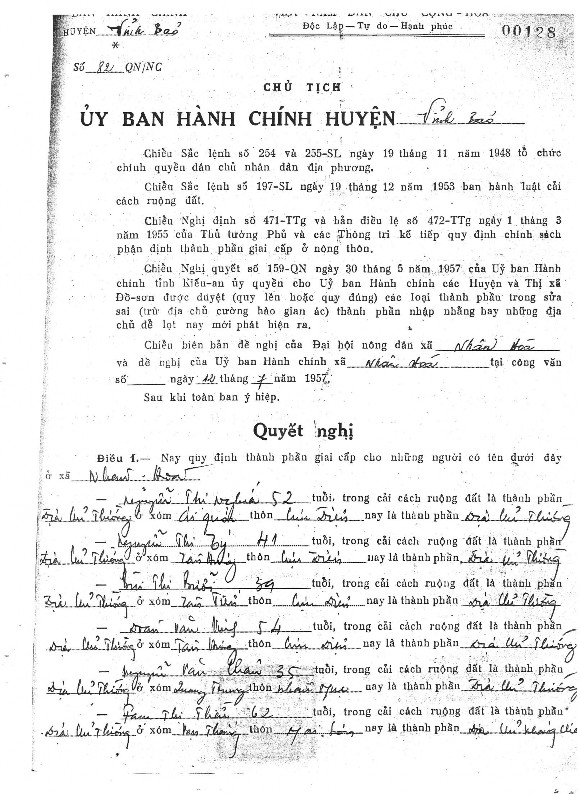 HUYỆN Vĩnh Bảo
Độc Lập — Tự do — Hạnh phúc
00128
*
Số 82 QN/NC
CHỦ TỊCH
ỦY BAN HÀNH CHÍNH HUYỆN Vĩnh Bảo
Chiểu Sắc lệnh số 254 và 255-SL ngày 19 tháng 11 năm 1948 tổ chức
chính quyền dân chủ nhân dân địa phương.
Chiểu Sắc lệnh số 197-SL ngày 19 tháng 12 năm 1953 ban hành luật cải
cách ruộng đất.
Chiểu Nghị định số 471-TTg và bản điều lệ số 472-TTg ngày 1 tháng 3
năm 1955 của Thủ tướng Phủ và các Thông tri kế tiếp quy định chính sách
phận định thành phần giai cấp ở nông thôn.
Chiểu Nghị quyết số 159-QN ngày 30 tháng 5 năm 1957 của Uỷ ban Hành
chính tỉnh Kiến-an ủy quyền cho Uỷ ban Hành chính các Huyện và Thị xã
Đồ-sơn được duyệt (quy lên hoặc quy đúng) các loại thành phần trong sửa
sai (trừ địa chủ cường hào gian ác) thành phần nhập nhằng hay những địa
chủ để lọt nay mới phát hiện ra.
Chiểu biên bản đề nghị của Đại hội nông dân xã Nhân Hoá
và đề nghị của Uỷ ban Hành chính xã Nhân Hoá tại công văn
số ngày 12 tháng 7 năm 1957.
Sau khi toàn ban ý hiệp.
Quyết nghị
Điều 1.— Nay quy định thành phần giai cấp cho những người có tên dưới đây
ở xã Nhân Hoá
— Nguyễn Thị Nghĩa 52 tuổi, trong cải cách ruộng đất là thành phần
Địa chủ Thường ở xóm thôn nay là thành phần Địa chủ Thường
— Nguyễn Thị Tý 41 tuổi, trong cải cách ruộng đất là thành phần
Địa chủ Thường ở xóm thôn nay là thành phần Địa chủ Thường
— Bùi Thị 39 tuổi, trong cải cách ruộng đất là thành phần
Địa chủ Thường ở xóm thôn nay là thành phần Địa chủ Thường
— Đoàn Văn 54 tuổi, trong cải cách ruộng đất là thành phần
Địa chủ Thường ở xóm thôn nay là thành phần Địa chủ Thường
— Nguyễn Văn 35 tuổi, trong cải cách ruộng đất là thành phần
Địa chủ Thường ở xóm Quang Trung thôn nay là thành phần Địa chủ Thường
— Phạm Thị 62 tuổi, trong cải cách ruộng đất là thành phần
Địa chủ Thường ở xóm thôn nay là thành phần Địa chủ kháng